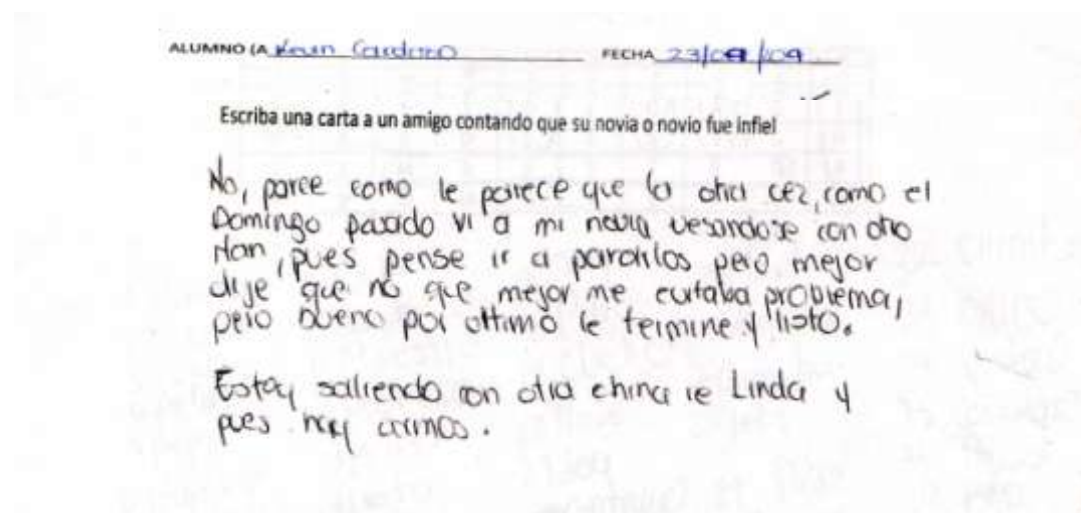 ALUMNO (A Kevin Cardozo FECHA 23/09/09
Escriba una carta a un amigo contando que su novia o novio fue infiel
No, parce como le parece que la otra vez, como el
Domingo pasado vi a mi novia vesandose con otro
Man, pues pense ir a pararlos pero mejor
dije que no que mejor me evitaba problema,
pero bueno por ultimo le termine y listo.
Estoy saliendo con otra china re Linda y
pues hay